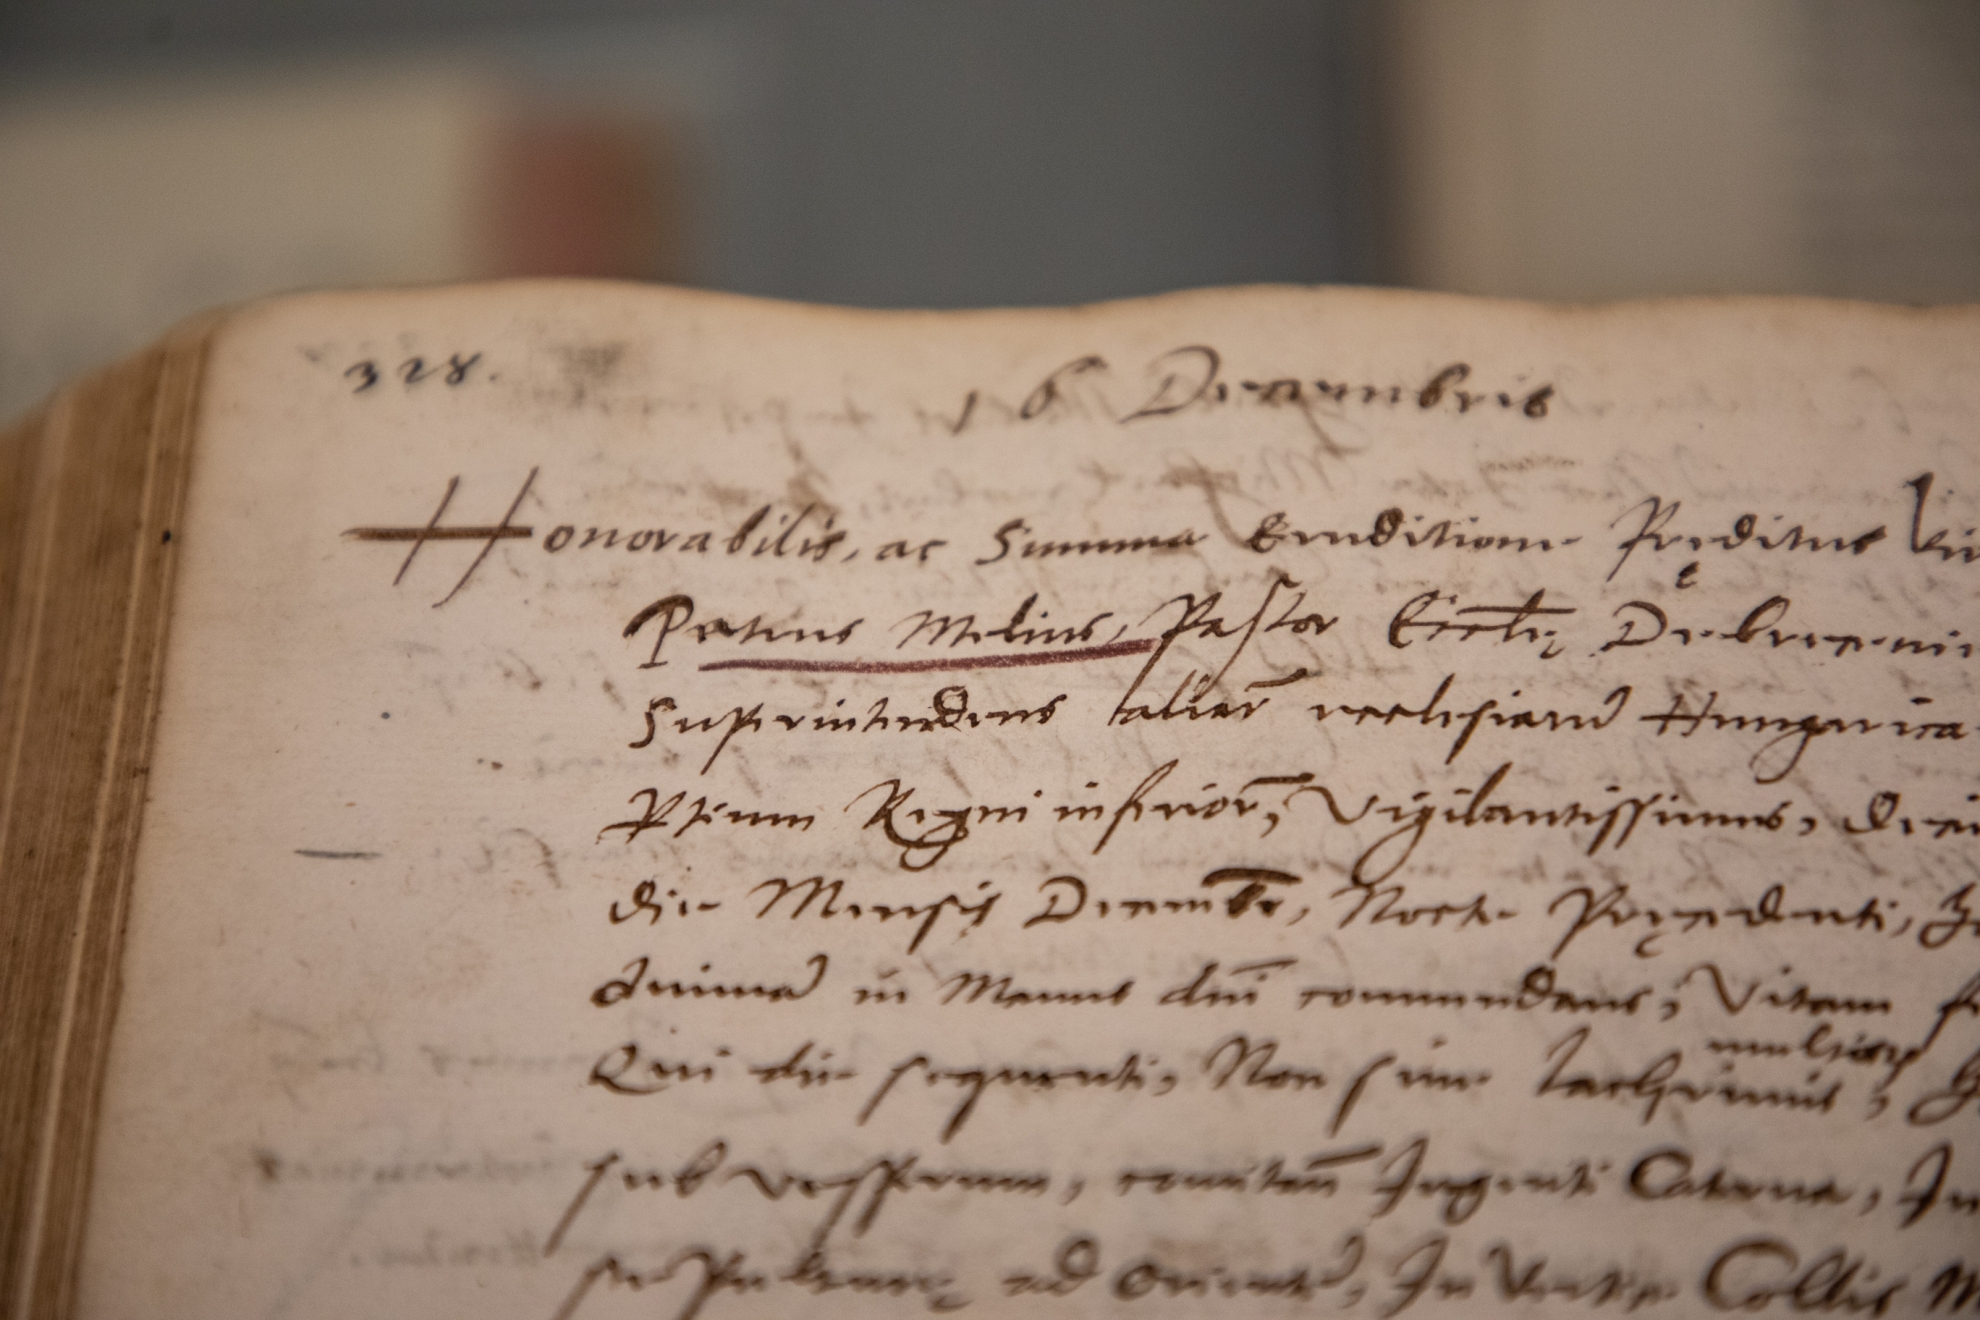 328.
16 Decembris
Honorabilis, ac Summa Eruditione Pręditus Vi
Petrus Melius, Pastor Eccłię Debreceni
Superintendens aliar̄ ecclesiarū Hungarica
Ptium Regni inferior̄, Vigilantissimus, Deci
die Mensis Decemb̄r, Nocte Pręcedenti,
Animā in Manus dn̄i commendans, Vitam
mulier
Qui die sequenti, Non sine lachrimis,
sub vesperum, comitān Ingenti Caterua, In
ad Orientē, In Vertice Collis